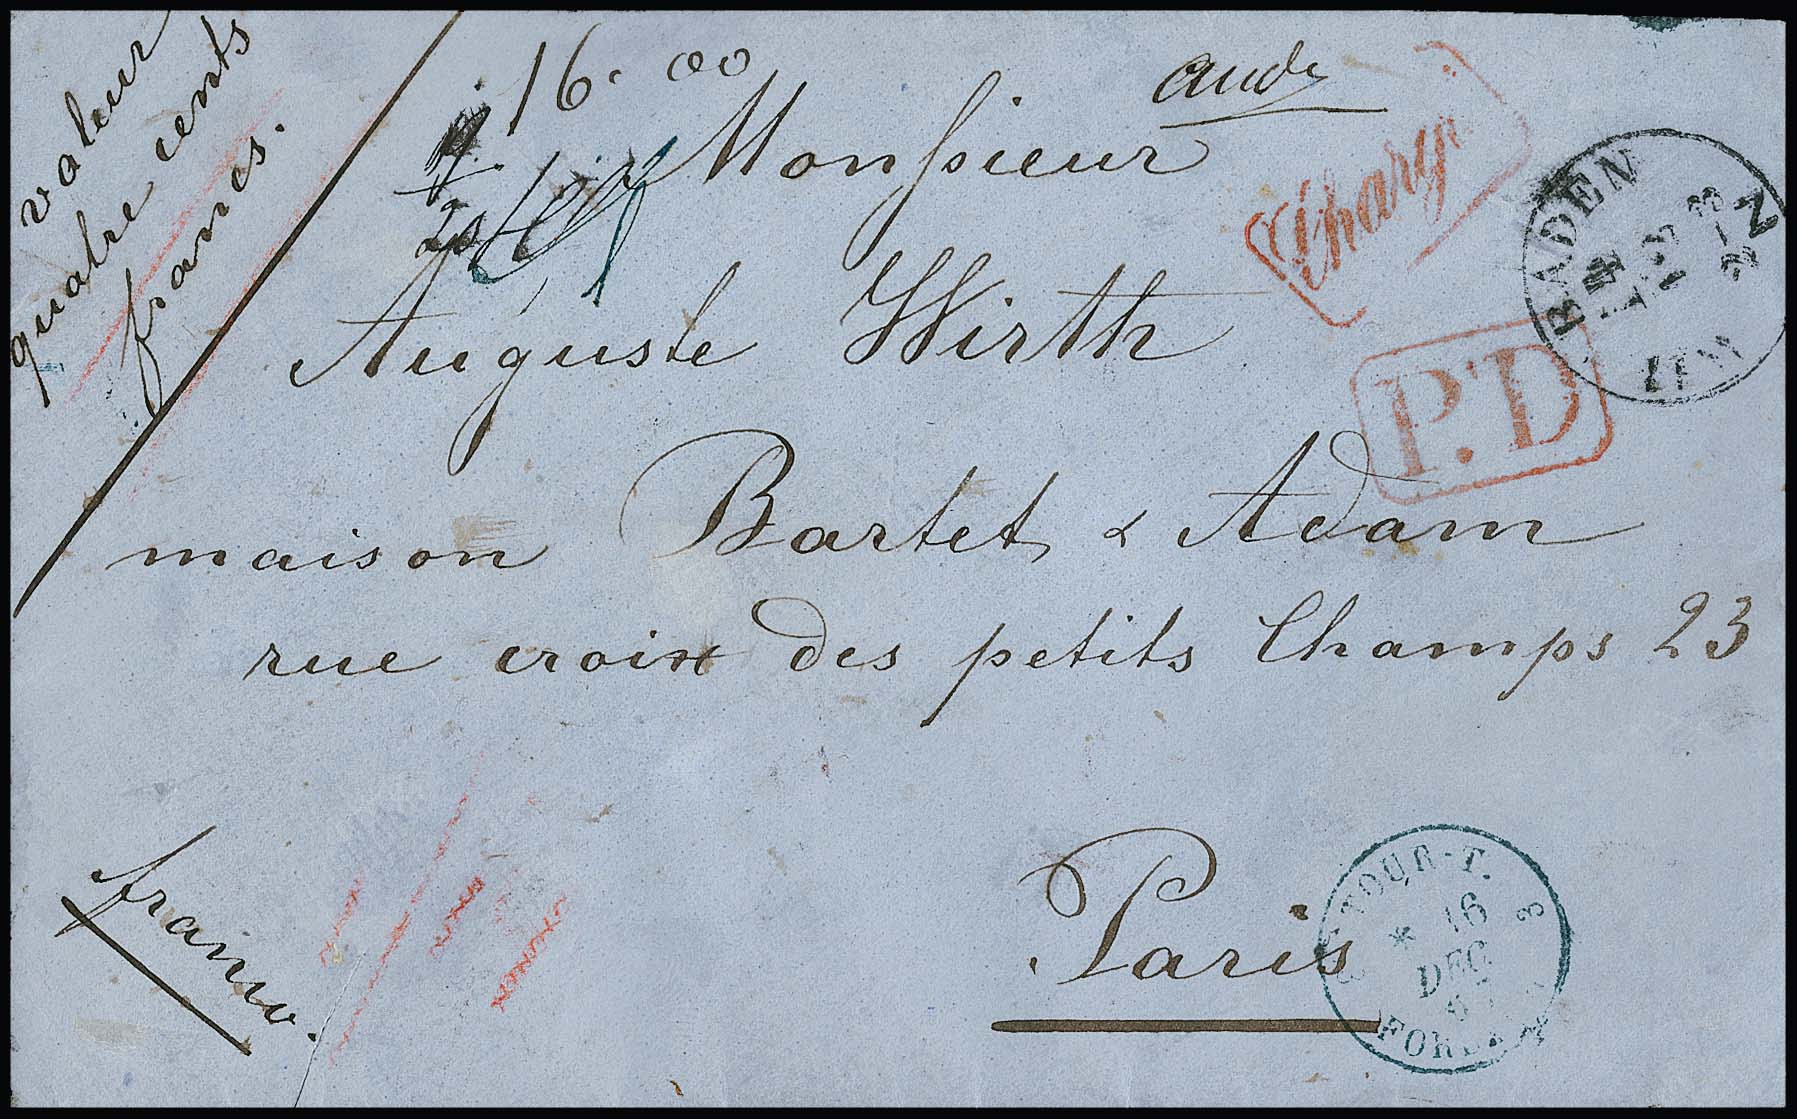 valeur
quatre cents
francs.
16. 00
Monsieur
Chargé
BADEN
2-3 N
P.D
Auguste Wirth
maison Bartet & Adam
rue croix des petits Champs 23
franco.
Paris
TOUR-T.
* 16
DEC
3
FORBA